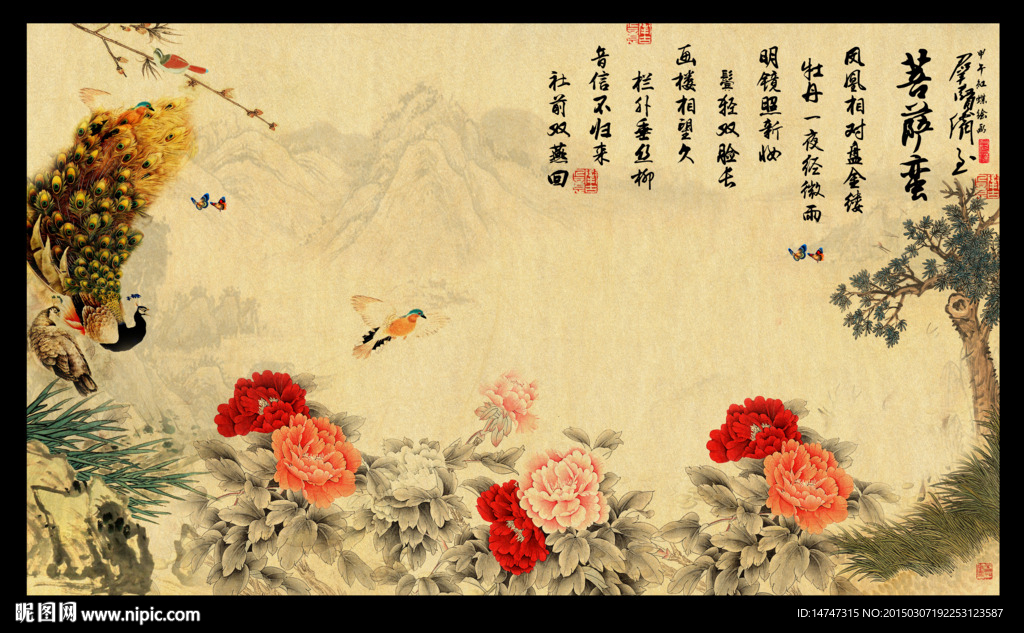 菩萨蛮
凤凰相对盘金缕
牡丹一夜经微雨
明镜照新妆
鬓轻双脸长
画楼相望久
栏外垂丝柳
音信不归来
社前双燕回
昵图网 www.nipic.com
ID:14747315 NO:20150307192253123587